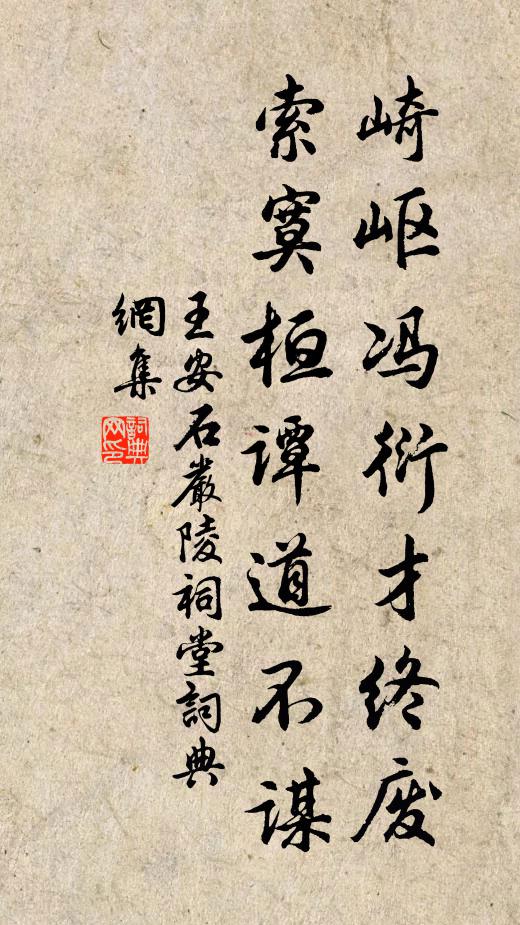 崎岖冯衍才终废
索寞桓谭道不谋
王安石嚴陵祠堂詞典
網集
詞典网印